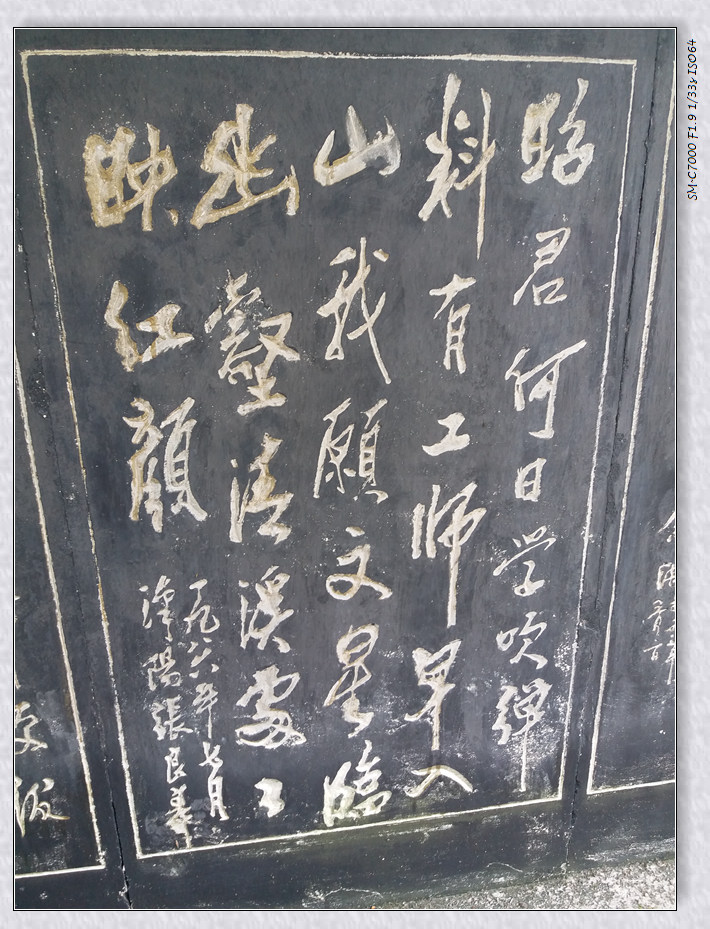 盼君何日学吹弹
料有工师早入
山我愿文星临
幽壑清溪處々
映红颜
一九八六年七月
陽張良
SM-C7000 F1.9 1/33s ISO64